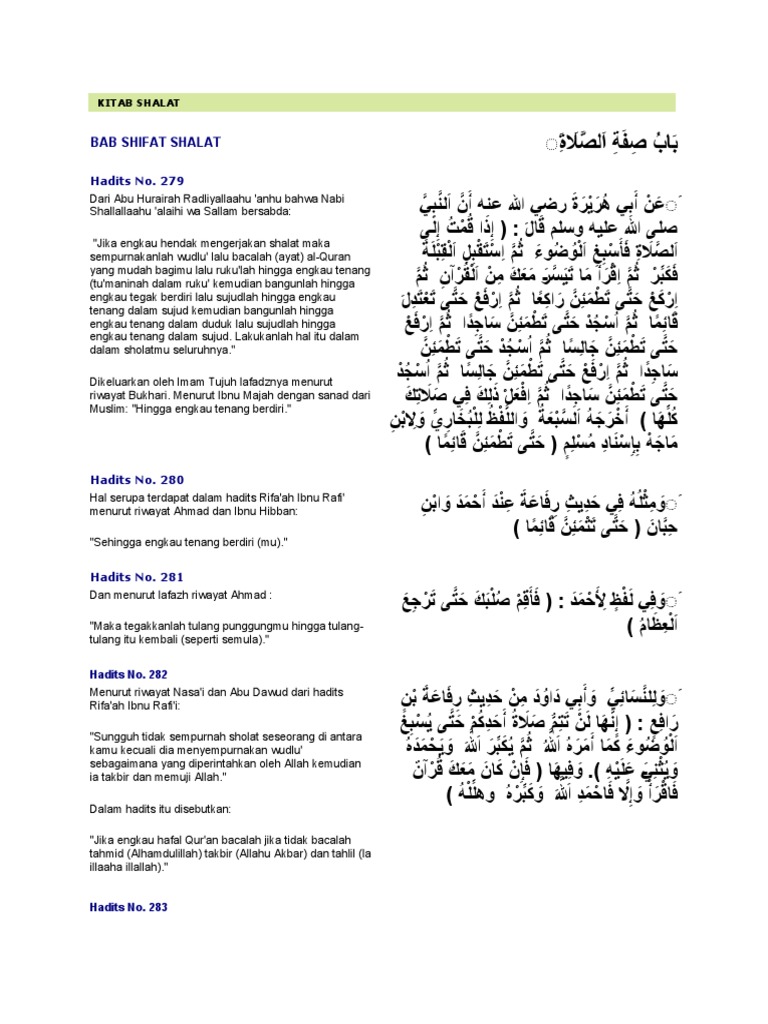 KITAB SHALAT
BAB SHIFAT SHALAT
بَابُ صِفَةِ اَلصَّلَاةِ
Hadits No. 279
Dari Abu Hurairah Radliyallaahu 'anhu bahwa Nabi
Shallallaahu 'alaihi wa Sallam bersabda:
"Jika engkau hendak mengerjakan shalat maka
sempurnakanlah wudlu' lalu bacalah (ayat) al-Quran
yang mudah bagimu lalu ruku'lah hingga engkau tenang
(tu'maninah dalam ruku' kemudian bangunlah hingga
engkau tegak berdiri lalu sujudlah hingga engkau
tenang dalam sujud kemudian bangunlah hingga
engkau tenang dalam duduk lalu sujudlah hingga
engkau tenang dalam sujud. Lakukanlah hal itu dalam
dalam sholatmu seluruhnya."
Dikeluarkan oleh Imam Tujuh lafadznya menurut
riwayat Bukhari. Menurut Ibnu Majah dengan sanad dari
Muslim: "Hingga engkau tenang berdiri."
َعَنْ أَبِي هُرَيْرَةَ رضي الله عنه أَنَّ اَلنَّبِيَّ
صلى الله عليه وسلم قَالَ : ( إِذَا قُمْتُ إِلَى
اَلصَّلَاةِ فَأَسْبِغِ اَلْوُضُوءَ ثُمَّ اِسْتَقْبِلِ اَلْقِبْلَةَ
فَكَبِّرْ ثُمَّ اِقْرَأْ مَا تَيَسَّرَ مَعَكَ مِنْ اَلْقُرْآنِ ثُمَّ
اِرْكَعْ حَتَّى تَطْمَئِنَّ رَاكِعًا ثُمَّ اِرْفَعْ حَتَّى تَعْتَدِلَ
قَائِمًا ثُمَّ اُسْجُدْ حَتَّى تَطْمَئِنَّ سَاجِدًا ثُمَّ اِرْفَعْ
حَتَّى تَطْمَئِنَّ جَالِسًا ثُمَّ اُسْجُدْ حَتَّى تَطْمَئِنَّ
سَاجِدًا ثُمَّ اِرْفَعْ حَتَّى تَطْمَئِنَّ جَالِسًا ثُمَّ اُسْجُدْ
حَتَّى تَطْمَئِنَّ سَاجِدًا ثُمَّ اِفْعَلْ ذَلِكَ فِي صَلَاتِكَ
كُلِّهَا ) أَخْرَجَهُ اَلسَّبْعَةُ وَاللَّفْظُ لِلْبُخَارِيِّ وَلِابْنِ
مَاجَهْ بِإِسْنَادِ مُسْلِمٍ ( حَتَّى تَطْمَئِنَّ قَائِمًا )
Hadits No. 280
Hal serupa terdapat dalam hadits Rifa'ah Ibnu Rafi'
menurut riwayat Ahmad dan Ibnu Hibban:
"Sehingga engkau tenang berdiri (mu)."
َوَمِثْلُهُ فِي حَدِيثِ رِفَاعَةَ عِنْدَ أَحْمَدَ وَابْنِ
حِبَّانَ ( حَتَّى تَثْمَئِنَّ قَائِمًا )
Hadits No. 281
Dan menurut lafazh riwayat Ahmad :
"Maka tegakkanlah tulang punggungmu hingga tulang-
tulang itu kembali (seperti semula)."
َوَفِي لَفْظٍ لِأَحْمَدَ : ( فَأَقِمْ صُلْبَكَ حَتَّى تَرْجِعَ
اَلْعِظَامُ )
Hadits No. 282
Menurut riwayat Nasa'i dan Abu Dawud dari hadits
Rifa'ah Ibnu Rafi'i:
"Sungguh tidak sempurnah sholat seseorang di antara
kamu kecuali dia menyempurnakan wudlu'
sebagaimana yang diperintahkan oleh Allah kemudian
ia takbir dan memuji Allah."
Dalam hadits itu disebutkan:
"Jika engkau hafal Qur'an bacalah jika tidak bacalah
tahmid (Alhamdulillah) takbir (Allahu Akbar) dan tahlil (la
illaaha illallah)."
َوَلِلنَّسَائِيِّ وَأَبِي دَاوُدَ مِنْ حَدِيثِ رِفَاعَةَ بْنِ
رَافِعٍ : ( إِنَّهَا لَنْ تَتِمَّ صَلَاةُ أَحَدِكُمْ حَتَّى يُسْبِغَ
اَلْوُضُوءَ كَمَا أَمَرَهُ اَللَّهُ ثُمَّ يُكَبِّرَ اَللَّهَ وَيَحْمَدَهُ
وَيُثْنِيَ عَلَيْهِ ). وَفِيهَا ( فَإِنْ كَانَ مَعَكَ قُرْآنٌ
فَاقْرَأْ وَإِلَّا فَاحْمَدِ اَللَّهَ وَكَبِّرْهُ وهَلِّلْهُ )
Hadits No. 283